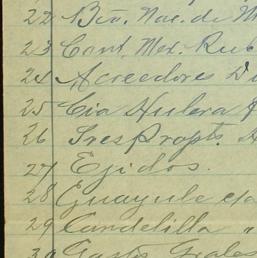 22 Bco. Nac. de M
23 Cont. Mex. Rub
24 Acreedores Di
25 Cia Hulera
26 Tres Propts.
27 Ejidos.
28 Guayule
29 Candelilla "
30 Gastos Grales